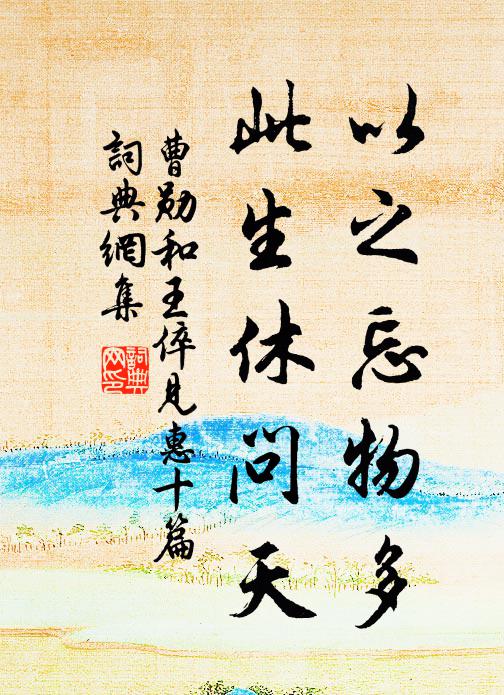 以之忘物多
此生休問天
曹勛和王倅見惠十篇
詞典網集
詞典网印